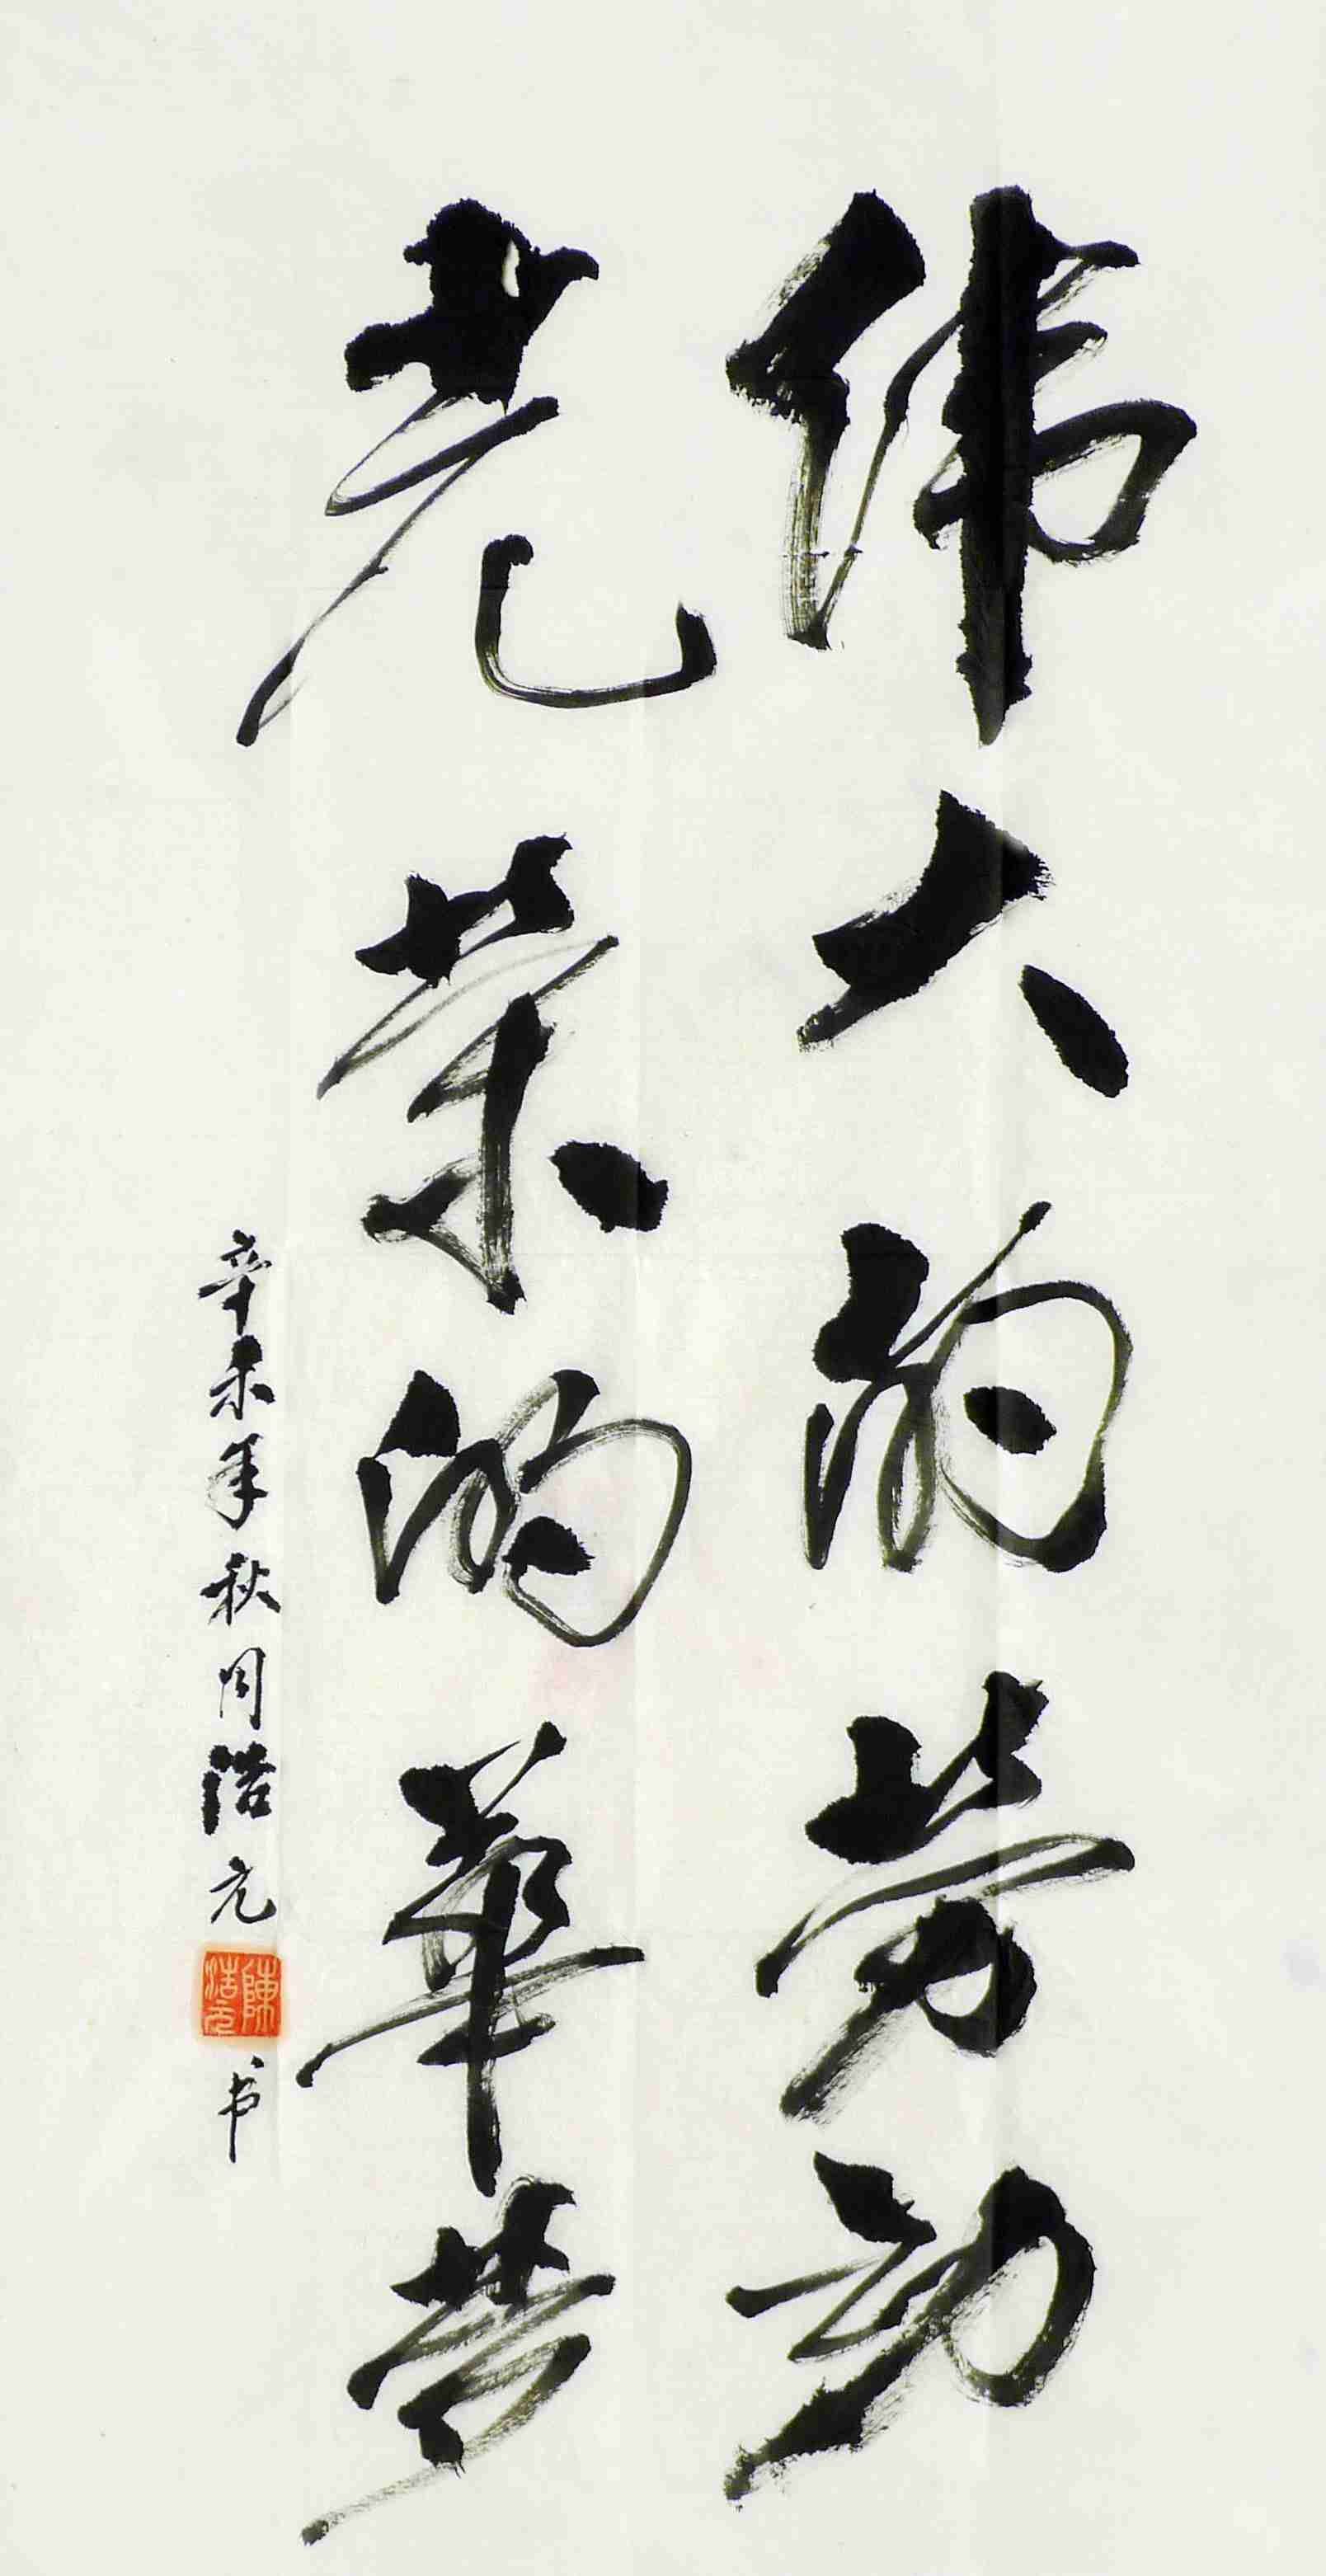 伟大的劳动
光荣的华营
辛未年秋月浩元
陳浩元
书